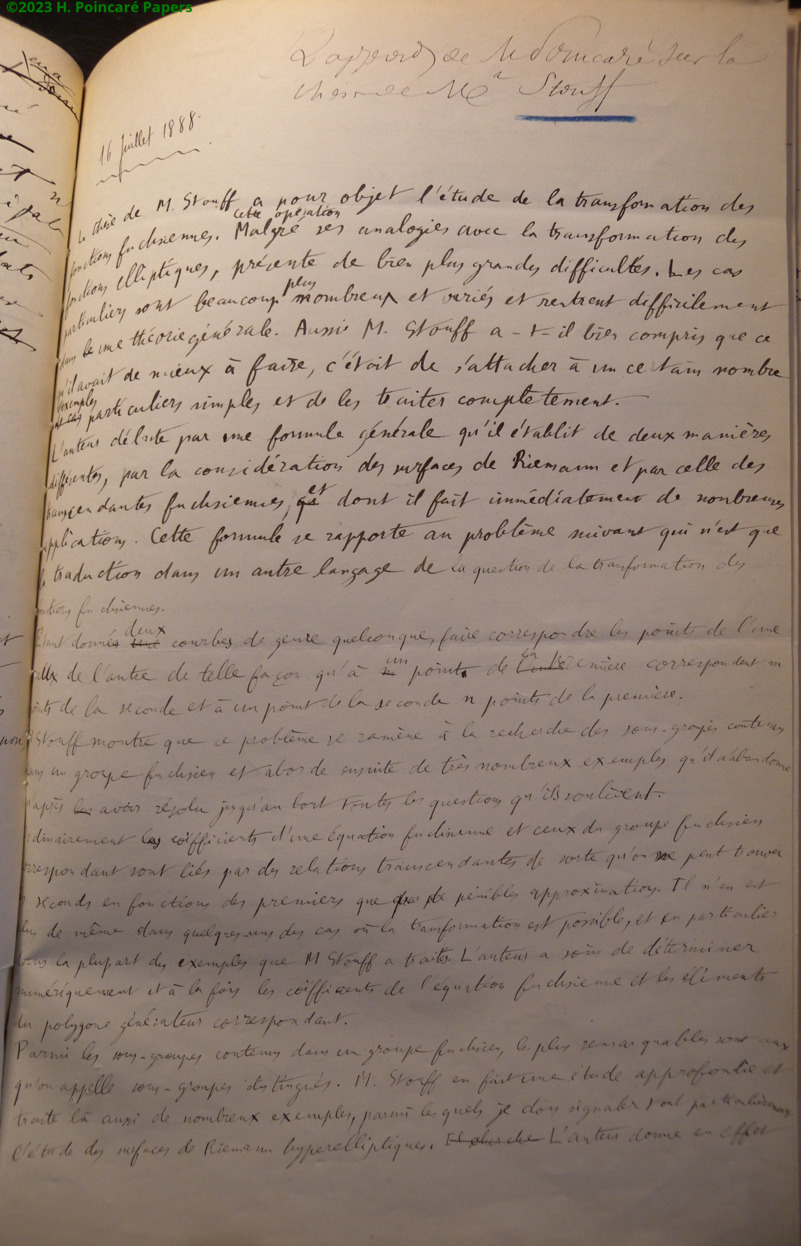 ©2023 H. Poincaré Papers
Rapport de M Poincaré sur la
thèse de Mr Stouff
16 Juillet 1888.
La thèse de M. Stouff a pour objet l'étude de la transformation des
fonctions fuchsiennes. Cette opération Malgré ses analogies avec la transformation des
fonctions elliptiques, présente de bien plus grandes difficultés. Les cas
particuliers sont beaucoup plus nombreux et variés et rentrent difficilement
dans une théorie générale. Aussi M. Stouff a-t-il bien compris que ce
qu'il avait de mieux à faire, c'était de s'attacher à un certain nombre
d'exemples
de cas particuliers simples et de les traiter complètement.
L'auteur débute par une formule générale qu'il établit de deux manières
différentes, par la considération des surfaces de Riemann et par celle des
transcendantes fuchsiennes, et dont il fait immédiatement de nombreuses
applications. Cette formule se rapporte au problème suivant qui n'est que
la traduction dans un autre langage de la question de la transformation des
fonctions fuchsiennes.
Etant donnés deux courbes de genre quelconque, faire correspondre les points de l'une
à ceux de l'autre de telle façon qu'à un point de la première correspondent m
points de la seconde et à un point de la seconde n points de la première.
M Stouff montre que ce problème se ramène à la recherche des sous-groupes contenus
dans un groupe fuchsien et aborde ensuite de très nombreux exemples qu'il n'abandonne
qu'après avoir résolu jusqu'au bout toutes les questions qu'ils soulèvent.
Ordinairement les coëfficients d'une équation fuchsienne et ceux du groupe fuchsien
correspondant sont liés par des relations transcendantes de sorte qu'on ne peut trouver
les seconds en fonctions des premiers que par de pénibles approximations. Il n'en est
plus de même dans quelques-uns des cas où la transformation est possible, et en particulier
dans la plupart des exemples que M Stouff a traités. L'auteur a soin de déterminer
numériquement et à la fois les coëfficients de l'équation fuchsienne et les éléments
du polygone générateur correspondant.
Parmi les sous-groupes contenus dans un groupe fuchsien, les plus remarquables sont ceux
qu'on appelle sous-groupes distingués. M. Stouff en fait une étude approfondie et
traite là aussi de nombreux exemples, parmi lesquels je dois signaler tout particulièrement
l'étude des surfaces de Riemann hyperelliptiques. Il cherche L'auteur donne en effet